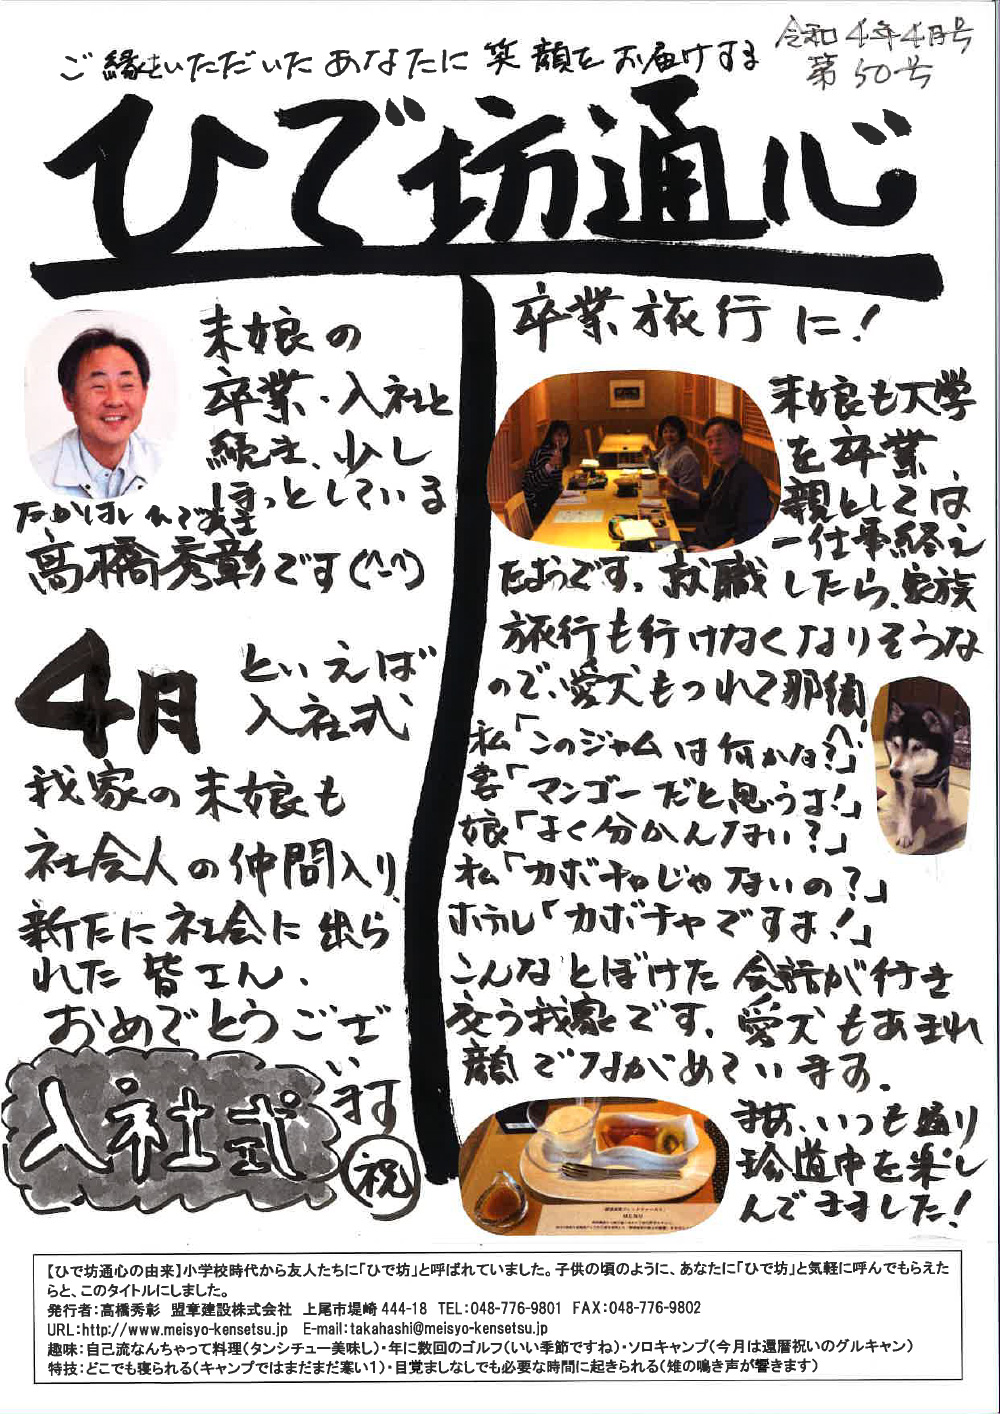 令和4年4月号
第50号
ご縁をいただいたあなたに笑顔をお届けする
ひで坊通心
末娘の
卒業・入社と
続き、少し
ほっとしている
たかはし ひであき
高橋秀彰です(^-^)
4月
といえば
入社式
我家の末娘も
社会人の仲間入り
新たに社会に出ら
れた皆さん、
おめでとうござ
います
入社式
祝
卒業旅行に!
末娘も大学
を卒業、
親としては
一仕事終え
たようです。就職したら、家族
旅行も行けなくなりそうな
ので、愛犬もつれて那須へ
私「このジャムは何かな?」
妻「マンゴーだと思うよ!」
娘「よく分かんない?」
私「カボチャじゃないの?」
ホテル「カボチャですよ!」
こんなとぼけた会話が行き
交う我家です。愛犬もあきれ
顔でながめています。
まあ、いつも通り
珍道中を楽し
んできました!
MENU
【ひで坊通心の由来】小学校時代から友人たちに「ひで坊」と呼ばれていました。子供の頃のように、あなたに「ひで坊」と気軽に呼んでもらえた
らと、このタイトルにしました。
発行者:高橋秀彰 盟章建設株式会社 上尾市堤崎444-18 TEL:048-776-9801 FAX:048-776-9802
URL:http://www.meisyo-kensetsu.jp E-mail:takahashi@meisyo-kensetsu.jp
趣味:自己流なんちゃって料理(タンシチュー美味し)・年に数回のゴルフ(いい季節ですね)・ソロキャンプ(今月は還暦祝いのグルキャン)
特技:どこでも寝られる(キャンプではまだまだ寒い1)・目覚ましなしでも必要な時間に起きられる(雉の鳴き声が響きます)